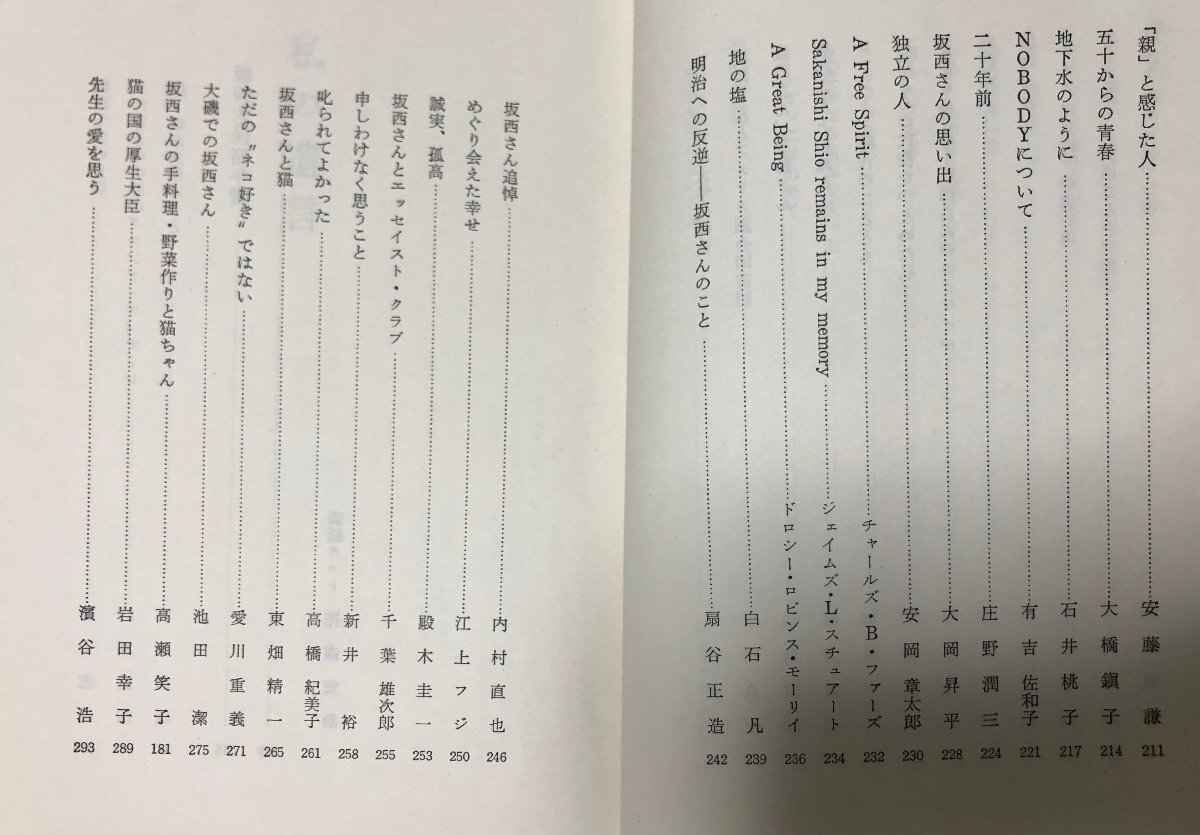 「親」と感じた人……安藤 謙 211
五十からの青春……大橋鎭子 214
地下水のように……石井桃子 217
NOBODYについて……有吉佐和子 221
二十年前……庄野潤三 224
坂西さんの思い出……大岡昇平 228
独立の人……安岡章太郎 230
A Free Spirit……チャールズ・B・ファーズ 232
Sakanishi Shio remains in my memory……ジェイムズ・L・スチュアート 234
A Great Being……ドロシー・ロビンス・モーリイ 236
地の塩……白石 凡 239
明治への反逆——坂西さんのこと……扇谷正造 242
坂西さん追悼……内村直也 246
めぐり会えた幸せ……江上フジ 250
誠実、孤高……殿木圭一 253
坂西さんとエッセイスト・クラブ……千葉雄次郎 255
申しわけなく思うこと……新井 裕 258
叱られてよかった……高橋紀美子 261
坂西さんと猫……東畑精一 265
ただの〝ネコ好き〟ではない……愛川重義 271
大磯での坂西さん……池田 潔 275
坂西さんの手料理・野菜作りと猫ちゃん……高瀬笑子 181
猫の国の厚生大臣……岩田幸子 289
先生の愛を思う……濱谷 浩 293